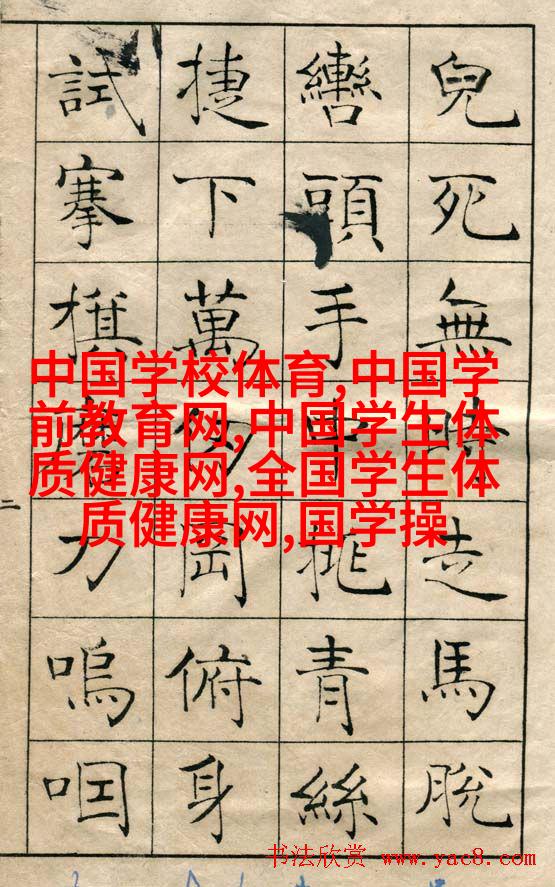 中国学校体育,中国学
前教育网,中国学生体
质健康网,全国学生体
质健康网,国学操
兒死無時走馬脫
轡頭手中挑青絲
捷下萬仞岡俯身
試搴旗磨刀嗚咽
二
书法欣赏 www.yac8.com